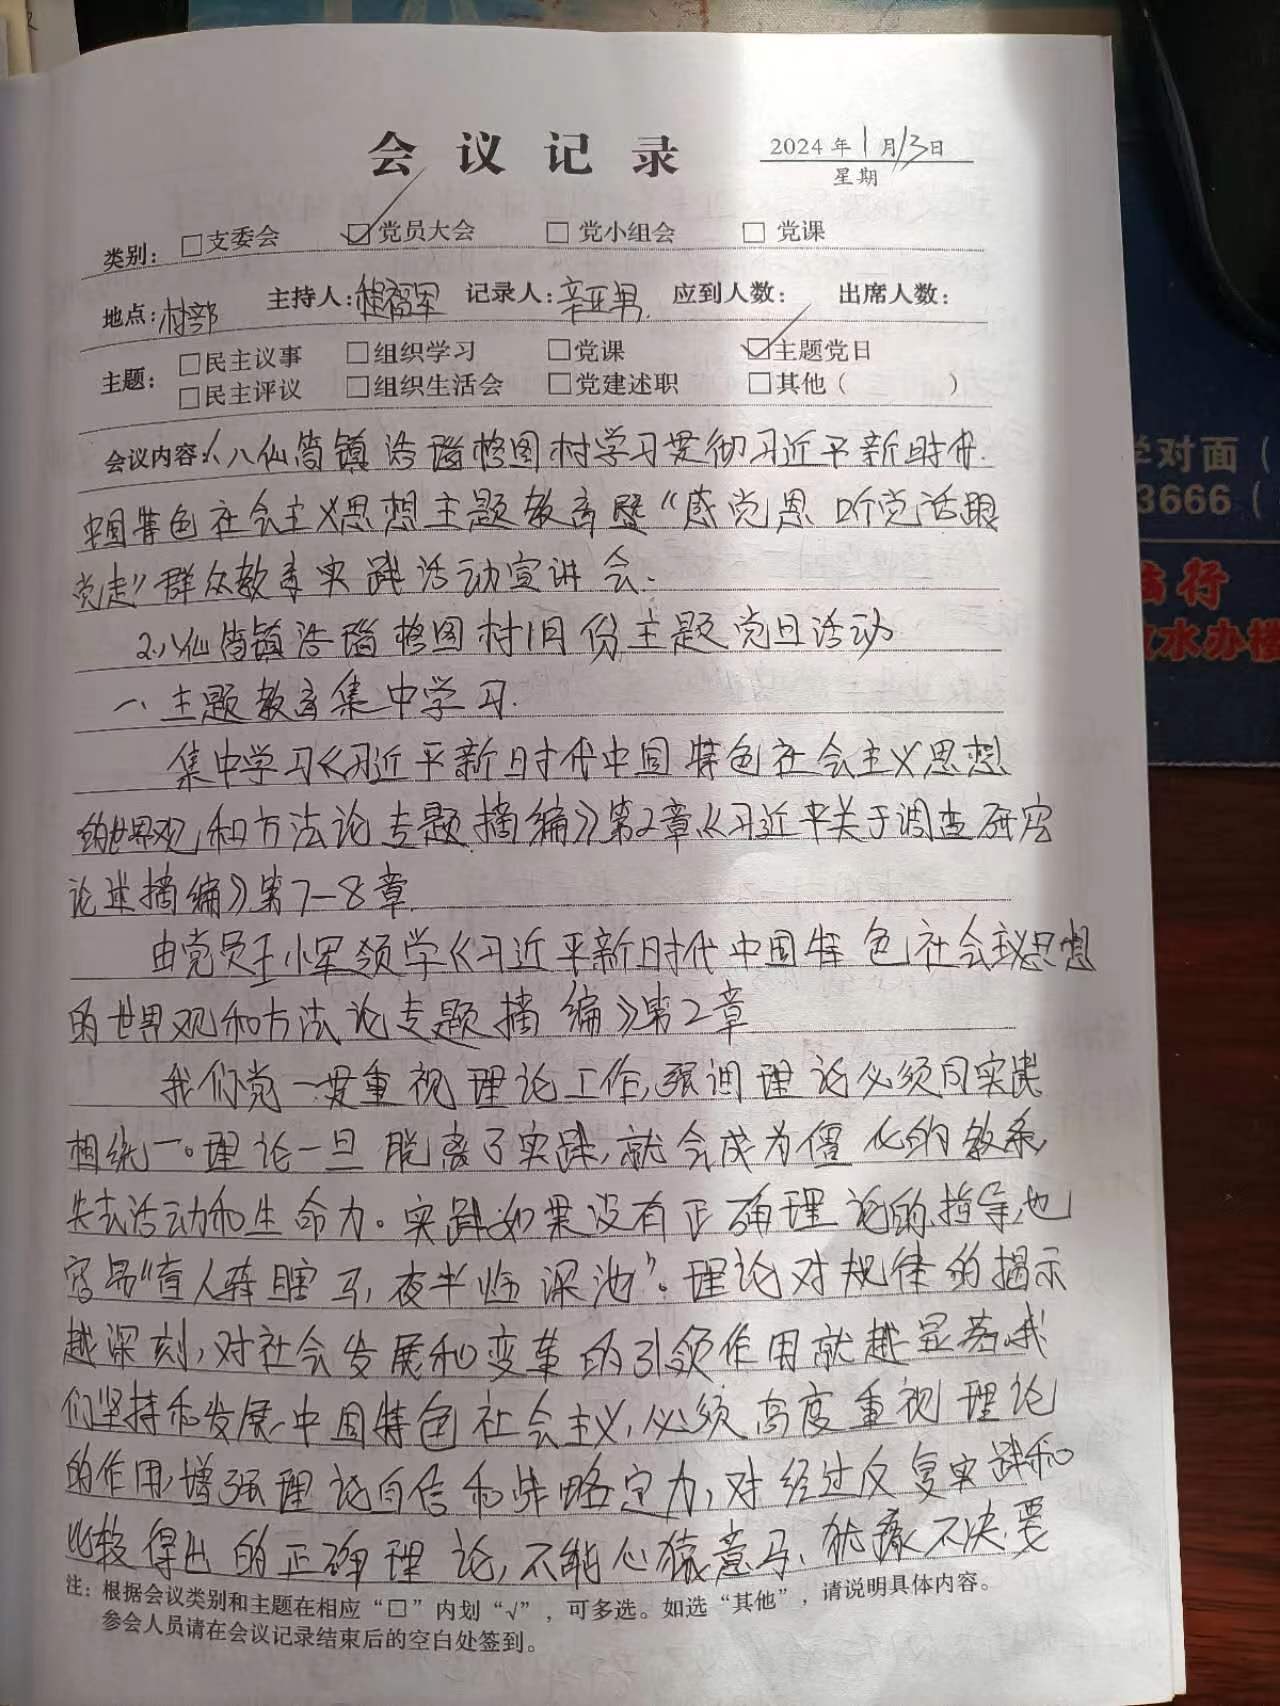 会议记录
2024年1月13日
星期
类别：□支委会 ☑党员大会 □党小组会 □党课
地点：村部 主持人：程福军 记录人：辛亚男 应到人数： 出席人数：
主题：□民主议事 □组织学习 □党课 ☑主题党日
□民主评议 □组织生活会 □党建述职 □其他（ ）
会议内容：1.八仙筒镇浩瑙格图村学习贯彻习近平新时代
中国特色社会主义思想主题教育暨“感党恩 听党话跟
党走”群众教育实践活动宣讲会.
2.八仙筒镇浩瑙格图村1月份主题党日活动
一、主题教育集中学习.
集中学习《习近平新时代中国特色社会主义思想
的世界观和方法论专题摘编》第2章《习近平关于调查研究
论述摘编》第7-8章.
由党员王小军领学《习近平新时代中国特色社会主义思想
的世界观和方法论专题摘编》第2章
我们党一贯重视理论工作,强调理论必须同实践
相统一。理论一旦脱离了实践,就会成为僵化的教条,
失去活动和生命力。实践如果没有正确理论的指导,也
容易“盲人骑瞎马,夜半临深池”。理论对规律的揭示
越深刻,对社会发展和变革的引领作用就越显著.我
们坚持和发展中国特色社会主义,必须高度重视理论
的作用,增强理论自信和战略定力,对经过反复实践和
比较得出的正确理论,不能心猿意马、犹豫不决.要
注：根据会议类别和主题在相应“□”内划“√”，可多选。如选“其他”，请说明具体内容。
参会人员请在会议记录结束后的空白处签到。
学对面（
3666（
行
水办楼